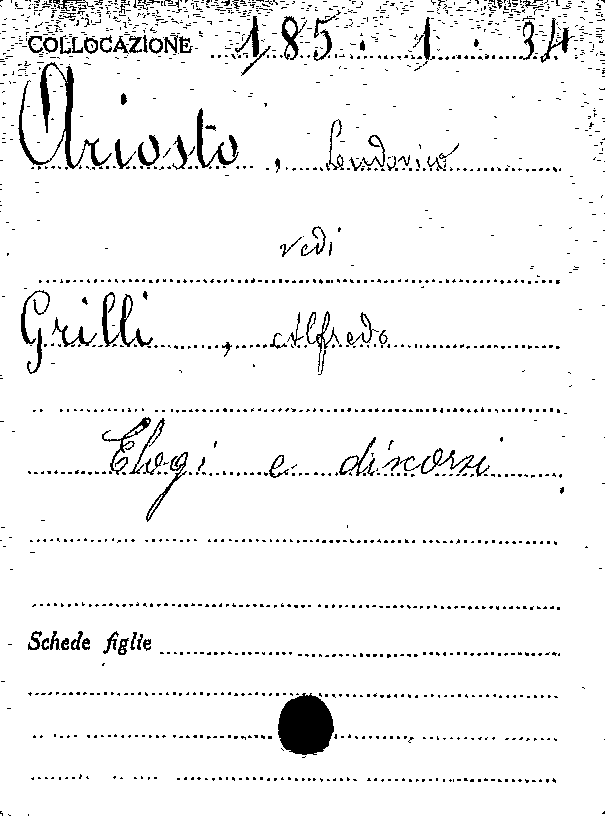 COLLOCAZIONE 185.1.34
Ariosto, Ludovico
vedi
Grilli, Alfredo
Elogi e discorsi
Schede figlie